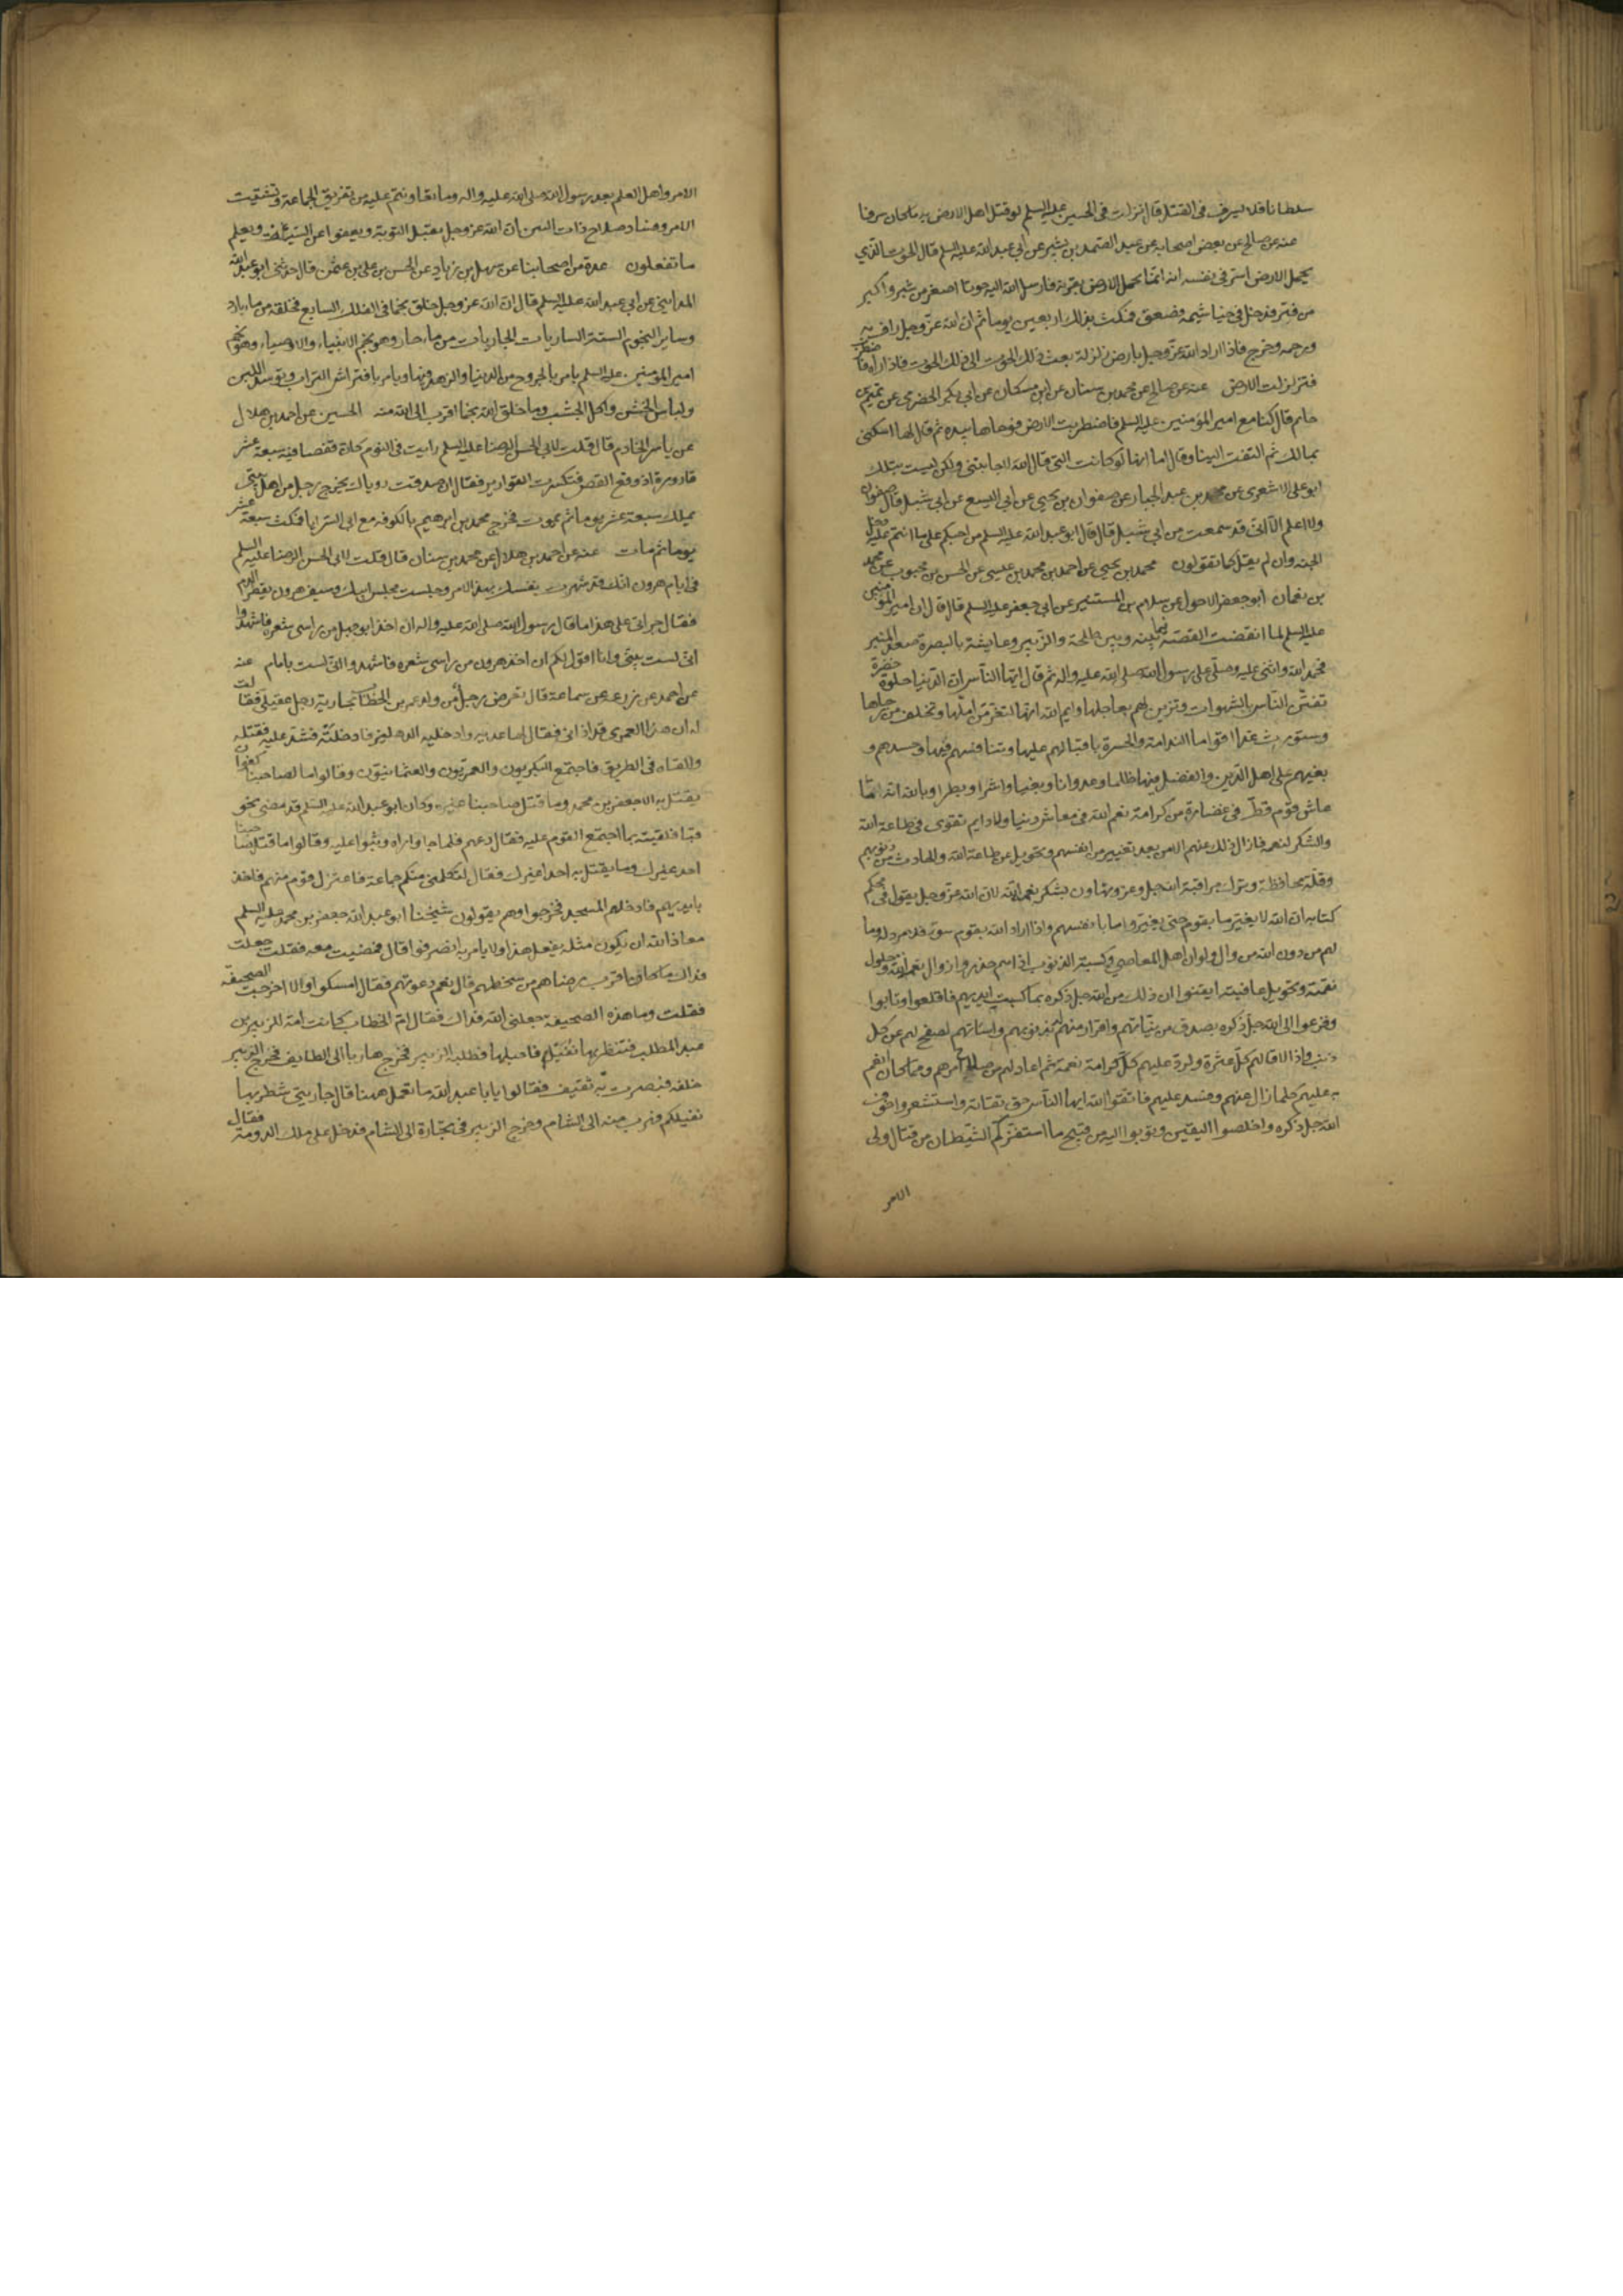 سلطانا فلا يسرف في القتل قال نزلت في الحسين عليه السلم لو قتل اهل الارض به ما كان سرفا
عنه عن صالح عن بعض اصحابه عن عبد الصمد بن بشير عن ابي عبد الله عليه السلم قال الحوت الذي
يحمل الارض اسر في نفسه انه انما يحمل الارض بقوته فارسل الله اليه حوتا اصغر من شبر واكبر
من فتر فدخل في خياشيمه فصعق فمكث بذلك اربعين يوما ثم ان الله عز وجل راف به
ورحمه وخرج فاذا اراد الله عز وجل بارض زلزلة بعث ذلك الحوت الى ذلك الحوت فاذا راه اضطرب
فتزلزلت الارض عنه عن صالح عن محمد بن سنان عن ابن مسكان عن ابي بكر الحضرمي عن تميم بن
حاتم قال كنا مع امير المؤمنين عليه السلم فاضطربت الارض فوحاها بيده ثم قال لها اسكني
مالك ثم التفت الينا وقال اما انها لو كانت التي قال الله لاجابتني ولكن ليست بتلك
ابو على الاشعرى عن محمد بن عبد الجبار عن صفوان بن يحيى عن ابي اليسع عن ابي شبل قال صفوان
ولا اعلم الا اني قد سمعت من ابي شبل قال قال ابو عبد الله عليه السلم من احبكم على ما انتم عليه دخل
الجنه وان لم يقل كما تقولون محمد بن يحيى عن احمد بن محمد بن عيسى عن الحسن بن محبوب عن محمد
بن نعمان ابو جعفر الاحول عن سلام بن المستنير عن ابي جعفر عليه السلم قال قال ان امير المؤمنين
عليه السلم لما انقضت القصة فيما بينه وبين طلحة والزبير وعايشة بالبصرة صعد المنبر
فحمد الله واثنى عليه وصلى على رسول الله صلى الله عليه واله ثم قال ايها الناس ان الدنيا حلوة خضرة
تفتن الناس بالشهوات وتزين لهم بعاجلها وايم الله انها لتغر من املها وتخلف من رجاها
وستورث غدا اقواما الندامة والحسرة باقبالهم عليها وتنافسهم فيها وحسدهم و
بغيهم على اهل الدين والفضل فيها ظلما وعدوانا وبغيا واشرا وبطرا وبالله انه ما
عاش قوم قط في غضارة من كرامة نعم الله في معاش دنيا ولا دايم تقوى في طاعة الله
والشكر لنعمه فازال ذلك عنهم الا من بعد تغيير من انفسهم وتحويل عن طاعة الله والحادث من ذنوبهم
وقلة محافظة وترك مراقبة الله جل وعز وتهاون بشكر نعم الله لان الله عز وجل يقول في محكم
كتابه ان الله لا يغير ما بقوم حتى يغيروا ما بانفسهم واذا اراد الله بقوم سوءا فلا مرد له وما
لهم من دونه من وال ولو ان اهل المعاصي وكسبة الذنوب اذا هم حذروا زوال نعم الله وحلول
نقمته وتحويل عافيته ايقنوا ان ذلك من الله جل ذكره بما كسبت ايديهم فاقلعوا وتابوا
وفزعوا الى الله جل ذكره بصدق من نياتهم واقرار منهم بذنوبهم واساءتهم لصفح لهم عن كل
ذنب واذا لاقالهم كل عثرة ولرد عليهم كل كرامة نعمة ثم اعاد لهم من صلاح امرهم ومما كان انعم
به عليهم كلما زال عنهم وفسد عليهم فاتقوا الله ايها الناس حق تقاته واستشعروا خوف
الله جل ذكره واخلصوا اليقين وتوبوا اليه من قبيح ما استفزكم الشيطان من قتال ولى
الامر
الامر واهل العلم بعد رسول الله صلى الله عليه واله وما تعاونتم عليه من تفريق الجماعة وتشتيت
الامر وفساد صلاح ذات البين ان الله عز وجل يقبل التوبة ويعفوا عن السيئات ويعلم
ما تفعلون عدة من اصحابنا عن سهل بن زياد عن الحسن بن علي بن عثمن قال حدثنى ابو عبد الله
المدايني عن ابي عبد الله عليه السلم قال ان الله عز وجل خلق نجما في الفلك السابع فخلقه من ماء بارد
وساير النجوم الستة الساريات الجاريات من ماء حار وهو نجم الانبياء والاوصياء وهو نجم
امير المؤمنين عليه السلم يامر بالخروج من الدنيا والزهد فيها ويامر بافتراش التراب وتوسد اللبن
ولباس الخشن واكل الجشب وما خلق الله نجما اقرب الى الله منه الحسين عن احمد بن هلال
عن ياسر الخادم قال قلت لابي الحسن الرضا عليه السلم رايت في النوم كان قفصا فيه سبعة عشر
قارورة اذ وقع القفص فتكسرت القوارير فقال ان صدقت روياك يخرج رجل من اهل بيتى
يملك سبعة عشر يوما ثم يموت فخرج محمد بن ابرهيم بالكوفه مع ابي السرايا فمكث سبعة عشر
يوما ثم مات عنه عن احمد بن هلال عن محمد بن سنان قال قلت لابي الحسن الرضا عليه السلم
في ايام هرون انك قد شهرت نفسك بهذا الامر وجلست مجلس ابيك وسيف هرون يقطر الدم
فقال جراني على هذا ما قال رسول الله صلى الله عليه واله ان اخذ ابو جهل من راسى شعرة فاشهدوا
انى لست بنبي وانا اقول لكم ان اخذ هرون من راسى شعره فاشهدوا انى لست بامام عنه
عن احمد عن زرعه عن سماعة قال تعرض رجل من ولد عمر بن الخطاب بجارية رجل عقيلي فقالت
له ان هذا العمرى قد اذاني فقال لها عديه وادخليه الدهليز فادخلته فشد عليه فقتله
والقاه في الطريق فاجتمع البكريون والعمريون والعثمانيون وقالوا ما لصاحبنا كفو لن
يقتل به الا جعفر بن محمد وما قتل صاحبنا غيره وكان ابو عبد الله عليه السلم قد مضى نحو
قبا فلقيته بما اجتمع القوم عليه فقال دعهم فلما جاو اراه وثبوا عليه وقالوا ما قتل صاحبنا
احد غيرك وما يقتل به احدا غيرك فقال لتكلمني منكم جماعة فاعتزل قوم منهم فاخذ
بايديهم فادخلهم المسجد فخرجوا وهم يقولون شيخنا ابو عبد الله جعفر بن محمد عليه السلم
معاذ الله ان يكون مثله يفعل هذا ولا يامر به انصرفوا قال فمضيت معه فقلت جعلت
فداك ما كان اقرب رضاهم من سخطهم قال نعم دعوتهم فقال امسكوا والا اخرجت الصحيفة
فقلت وما هذه الصحيفة جعلني الله فداك فقال ام الخطاب كانت امة للزبير بن
عبد المطلب فنظر بها نفيل فاحبلها فطلبه الزبير فخرج هاربا الى الطايف فخرج الزبير
خلفه فبصرت به ثقيف فقالوا يابا عبد الله ما تعمل ههنا قال جاريتى شطر بها
نفيلكم فهرب منه الى الشام وخرج الزبير في تجارة الى الشام فدخل على ملك الدومة فقال